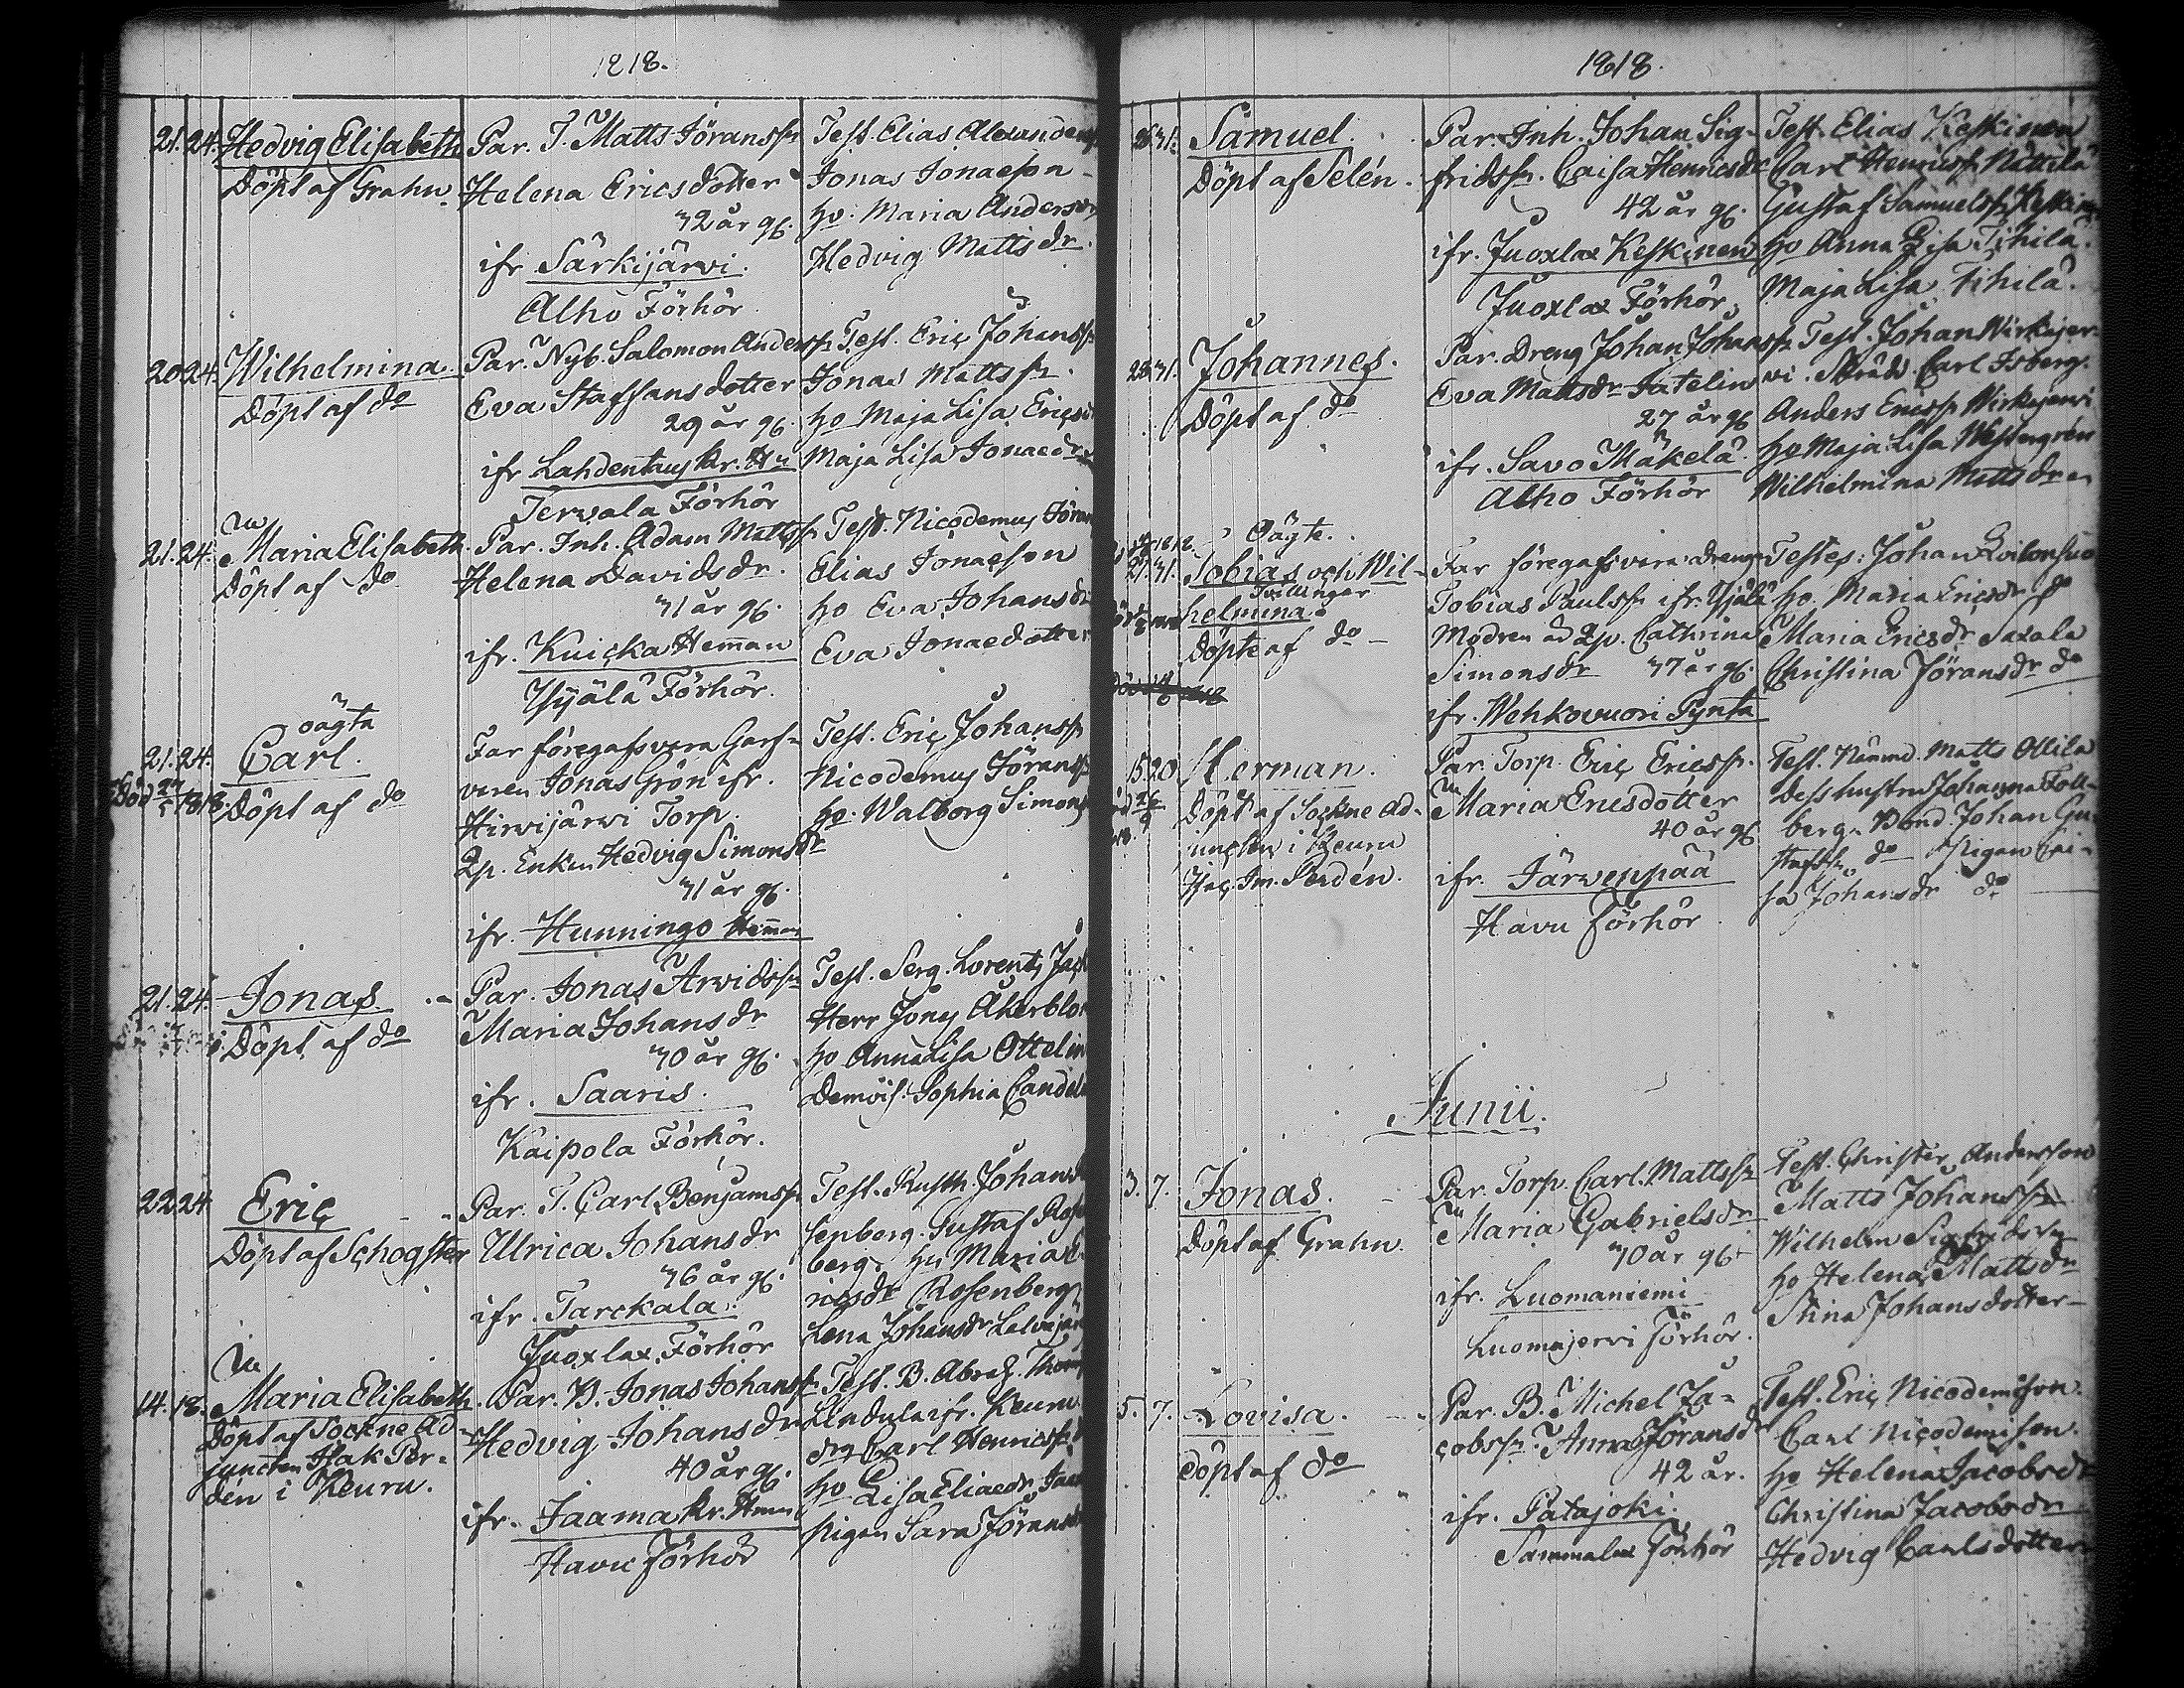 1818.
21. 24. Hedvig Elisabeth
Döpt af Grahn.
Par. T. Matts Jöranss:n
Helena Ericsdotter
32 år g/.
ifr Särkijärvi.
Alho Förhör
Test. Elias Alexanders
Jonas Jonaeson
ho. Maria Anders
Hedvig Mattsdr.
20 24. Wilhelmina.
Döpt af do
Par. Nyb. Salomon Anderss:n
Eva Staffansdotter
29 år g/.
ifr Lahdentaus kr. H:n
Tervala Förhör
Test. Eric Johanss:n
Jonas Matts:n.
ho Maja Lisa Erics
Maja Lisa Jonaedr
21. 24. Maria Elisabeth.
Döpt af do
Par. Inh. Adam Mattss:n
Helena Davidsdr.
31 år g/.
ifr. Kuicka Hem̄an
Yijälä Förhör.
Test. Nicodemus Jöran
Elias Jonaeson
ho Eva Johansdr
Eva Jonaedotter
oägta
21. 24. Carl.
Död 27/5 1818. Döpt af do
Far föregafs vara Garf-
varen Jonas Grön ifr.
Hirvijärvi Torp.
Qp. Enkan Hedvig Simonsdr
31 år g/.
ifr. Hunningo Hem̄an
Test. Eric Johanss:n
Nicodemus Jöranss
ho. Walborg Simons
21. 24. Jonas.
Döpt af do
Par. Jonas Arvidss:n
Maria Johansdr
30 år g/.
ifr. Saaris.
Kaipola Förhör.
Test. Serg. Lorentz
Herr Jonas Åkerblom
ho Anna Lisa Ottelin
Demois. Sophia Candel
22 24 Eric
Döpt af Schogster
Par. T. Carl Benjamss:n
Ulrica Johansdr
36 år g/.
ifr. Tarckala.
Juoxlax Förhör
Test. Rusth. Johan
senberg. Gustaf Ros
berg. ho Maria E
ricsdr Rosenberg
Lena Johansdr
14. 18. Maria Elisabeth
Döpt af Sockne Ad-
juncten Isak Per-
dén i Keuru.
Par. B. Jonas Johanss:n
Hedvig Johansdr
40 år g/.
ifr. Jaama kr. Hem̄.
Havu Förhör
Test. B. Abrah. Thom
Lindula ifr. Keuru
drg Carl Henricss:n
ho Lisa Eliaedr Jaa
pigan Sara Jörans
1818.
26 31. Samuel.
Döpt af Selén.
Par. Inh. Johan Sig-
fridss:n. Caisa Henricsdr
42 år g/.
ifr. Juoxlax Keskinen
Juoxlax Förhör
Test. Elias Keskinen
Carl Henricss:n Nättilä
Gustaf Samuelss:n Keskin
ho Anna Lisa Tihilä.
Maja Lisa Tihilä.
28 31. Johannes.
Döpt af do
Par. Dreng Johan Johanss:n
Eva Mattsdr
27 år g/.
ifr. Savo Mäkelä.
Alho Förhör
Test. Johan Wirkajer-
vi. Skrädd. Carl Isberg.
Anders Ericss:n Wirkajervi
ho Maja Lisa Westergrén
Wilhelmina Mattsdr
Oägte.
27. 31. Tobias och Wil-
Tvillingar
helmina.
Döpte af do
Far föregafs vara Dreng
Tobias Paulss:n ifr. Yijälä
Modren ad Qp. Cathrina
Simonsdr 37 år g/.
ifr. Wehkovuori Pynta
Testes: Johan
ho. Maria Ericsdr do
Maria Ericsdr Saxala
Christina Jöransdr do
15. 20. Herman.
Döpt af Sockne Ad-
juncten i Keuru
Isac Im. Perdén.
Par. Torp. Eric Ericss:n.
Maria Ericsdotter
40 år g/.
ifr. Järvenpää
Havu Förhör
Test. Nämnd. Matts Ollila
Dess hustru Johanna Foll-
berg. Bond. Johan Gu-
stafss:n do Pigan Cai-
sa Johansdr do
Junii.
3. 7. Jonas.
Döpt af Grahn.
Par. Torp. Carl Mattss:n
Maria Gabrielsdr
30 år g/.
ifr. Luomaniemi
Luomajervi Förhör.
Test. Christer Andersson
Matts Johanss:n
Wilhelm Sigfridss:n
ho Helena Mattsdr
Stina Johansdotter
5. 7. Lovisa.
döpt af do
Par. B. Michel Ja-
cobss:n. Anna Jöransdr
42 år.
ifr. Patajoki.
Sammalax Förhör
Test. Eric Nicodemison.
Carl Nicodemison.
ho Helena Jacobsdr
Christina Jacobsdr
Hedvig Carlsdotter